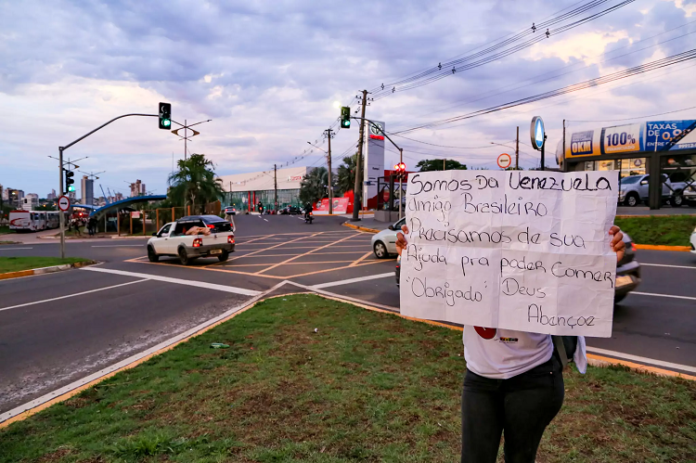 Somos Da Venezuela
Amigo Brasileiro
Precisamos de sua
Ajuda pra poder Comer
"Obrigado" Deus
Abençoe
TAXAS
DE
ENTRE
0KM
100%